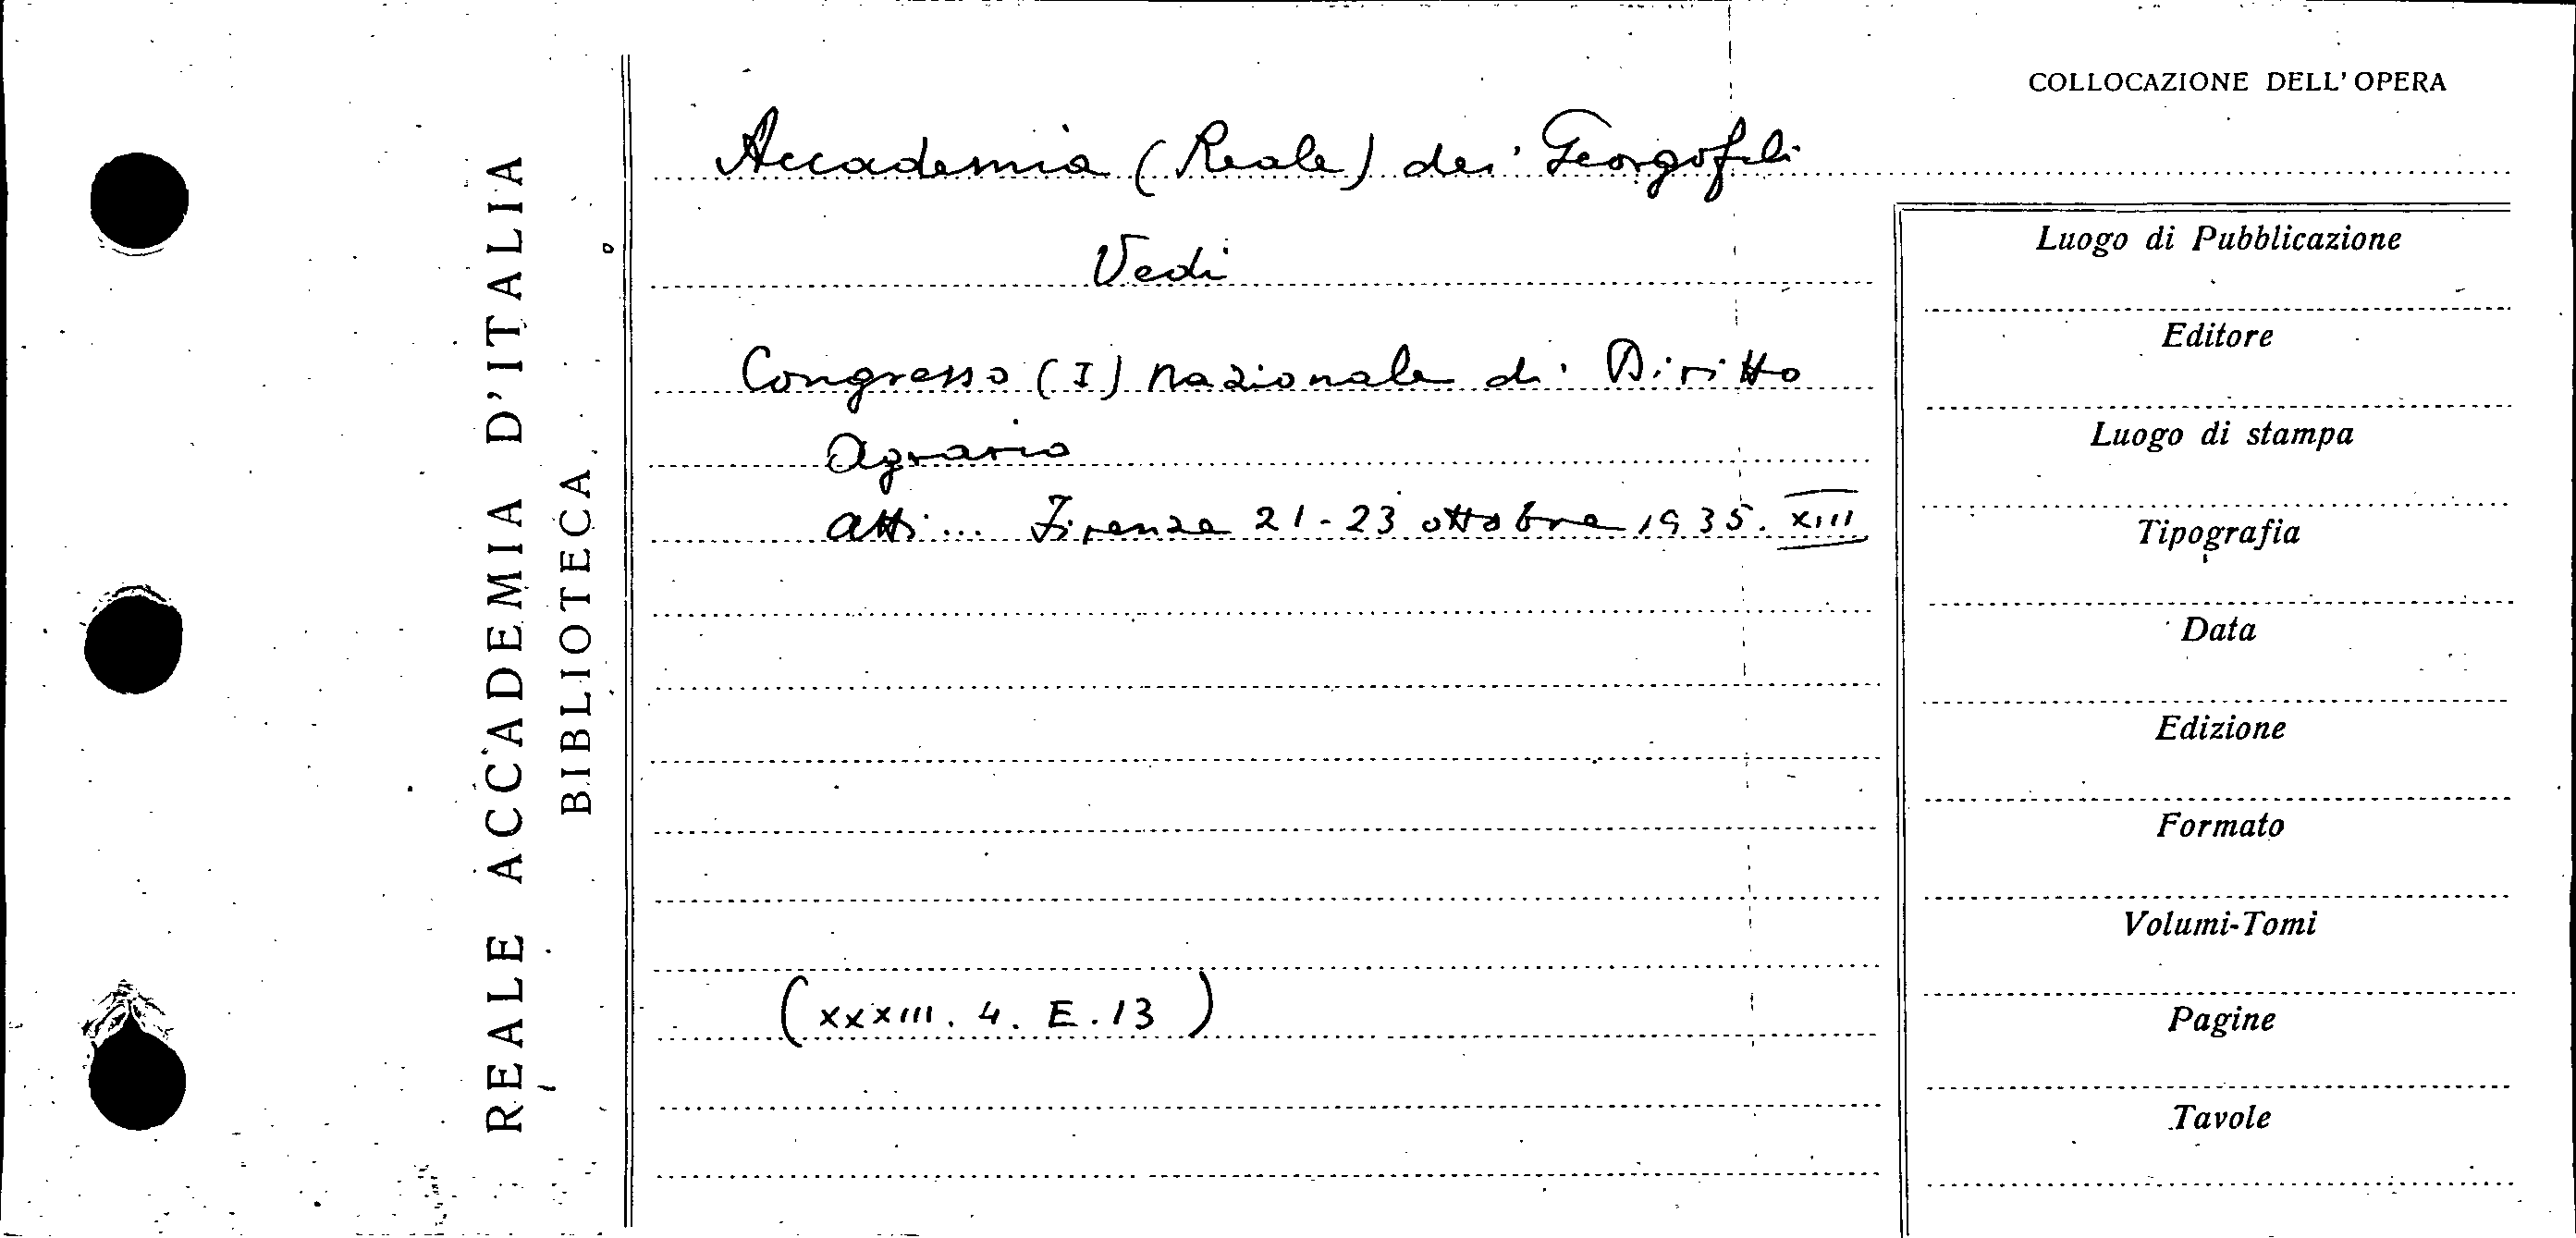 REALE ACCADEMIA D'ITALIA
BIBLIOTECA
COLLOCAZIONE DELL'OPERA
Accademia (Reale) dei Georgofili
Vedi
Congresso (I) Nazionale di Diritto
Agrario
Atti... Firenze 21-23 ottobre 1935. XIII
(XXXIII. 4. E. 13)
Luogo di Pubblicazione
Editore
Luogo di stampa
Tipografia
Data
Edizione
Formato
Volumi-Tomi
Pagine
Tavole